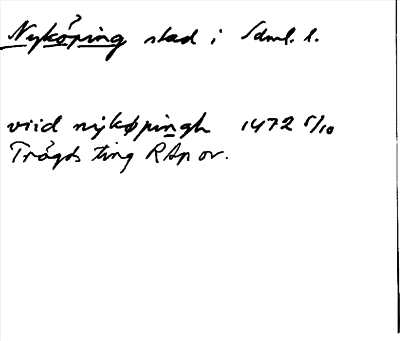 Nyköping stad i Sdml. l.
viid nykøpingh 1472 5/10
Trögds ting RAp or.